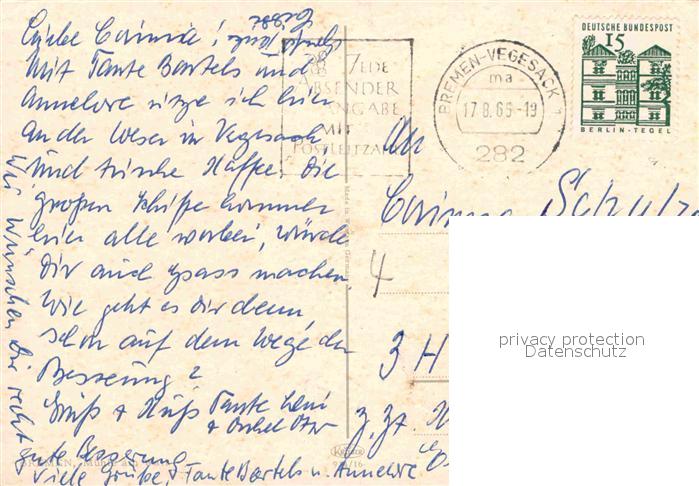 Liebe Corinna!
Mit Tante Bartels und
Annelore sitze ich hier
an der Weser in Vegesack
und trinke Kaffe. Die
großen Schiffe kommen
hier alle vorbei, würde
Dir auch Spass machen.
Wie geht es Dir denn,
schon auf dem Wege der
Besserung?
Gruß + Kuß Tante Leni
+ Onkel Otto
Wir wünschen Dir recht
gute Besserung
Viele Grüße, Tante Bartels u. Annelore
JEDE
ABSENDER
ANGABE
MIT
POSTLEITZAHL
BREMEN-VEGESACK 1
ma
17.8.65-19
282
DEUTSCHE BUNDESPOST
15
BERLIN-TEGEL
An
Corinna Schulze
4
3 H
z. Zt.
BREMEN, Mühle am Wall
Krüger
privacy protection
Datenschutz